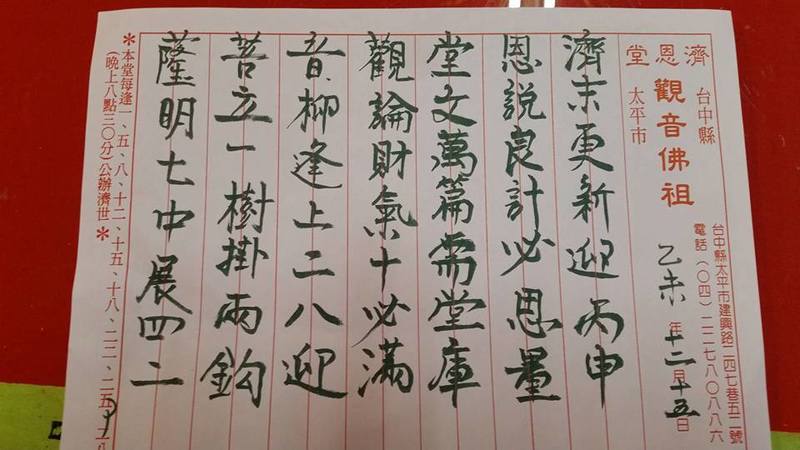 濟恩堂
台中縣
太平市
觀音佛祖
台中縣太平市建興路二四七巷五二號
電話(〇四)二二七八〇八八六
乙未年十二月十五日
濟未更新迎丙申
恩說良計必恩量
堂文萬篇需堂庫
觀論財氣十必滿
音柳逢上二八迎
菩立一樹掛兩鈎
薩明七中展四二
*本堂每逢一、五、八、十二、十五、十八、二二、二五、二八
(晚上八點三〇分)公辦濟世*